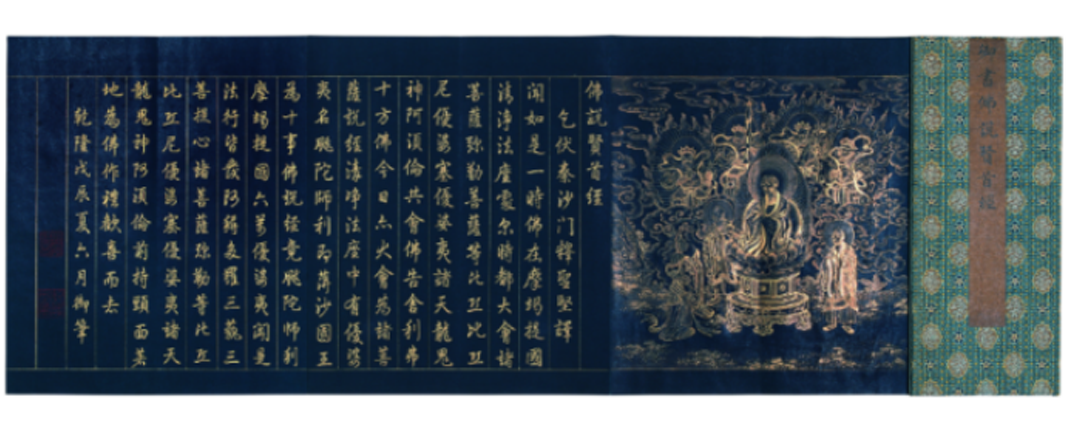 御書佛說賢首經
佛說賢首經
乞伏秦沙门釋聖堅譯
聞如是一時佛在摩竭提國
清淨法座處尔時都大會諸
菩薩弥勒菩薩等比丘比丘
尼優婆塞優婆夷諸天龍鬼
神阿須倫共會佛告舍利弗
十方佛今日亦大會為諸菩
薩說經清淨法座中有優婆
夷名颰陀師利即蓱沙國王
為十事佛說經竟颰陀師利
摩竭提國六萬優婆夷聞是
法行皆發阿耨多羅三藐三
菩提心諸菩薩弥勒等比丘
比丘尼優婆塞優婆夷諸天
龍鬼神阿須倫前持頭面著
地為佛作禮歡喜而去
乾隆戊辰夏六月御筆